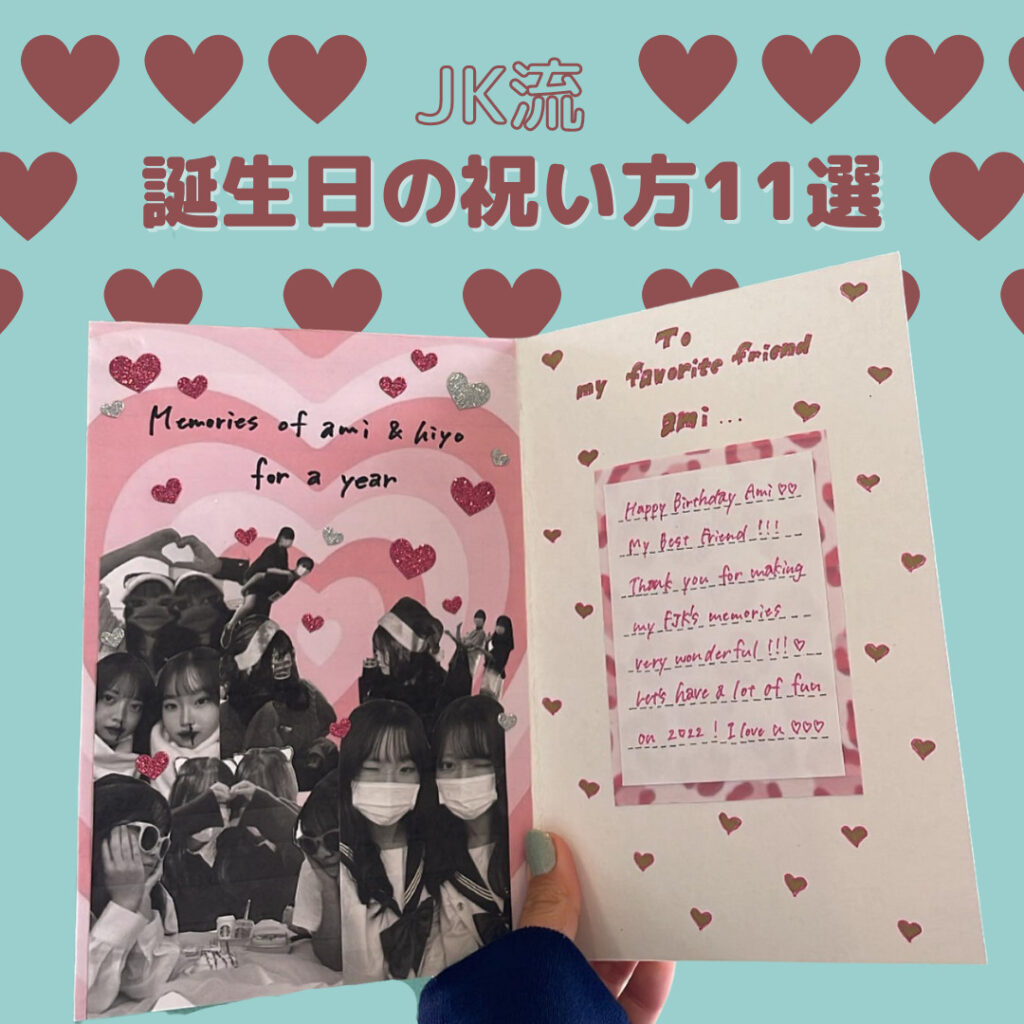 JK流
誕生日の祝い方11選
Memories of ami & hiyo
for a year
To
my favorite friend
ami...
Happy Birthday Ami♡♡
My Best Friend!!!
Thank you for making
my FJK's memories
very wonderful!!!♡
Let's have a lot of fun
on 2022! I love u♡♡♡